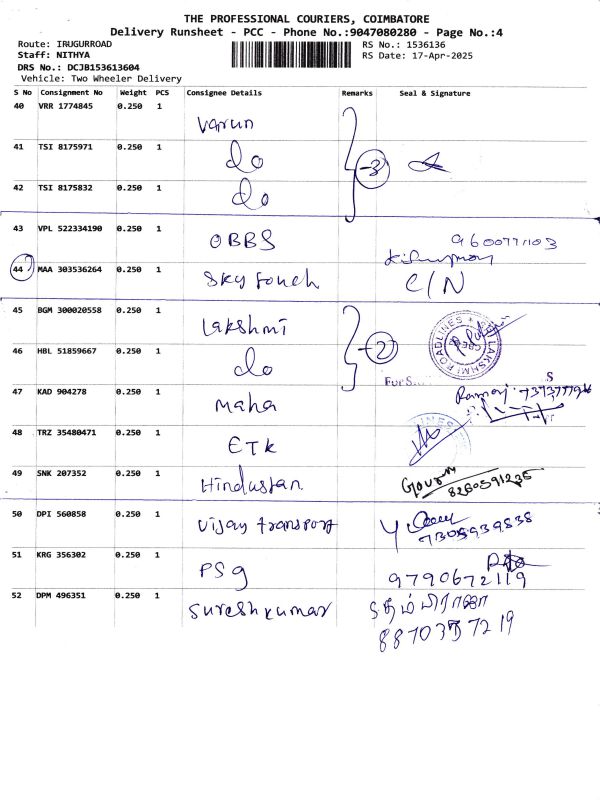 THE PROFESSIONAL COURIERS, COIMBATORE
Delivery Runsheet - PCC - Phone No.:9047080280 - Page No.:4
Route: IRUGURROAD
Staff: NITHYA
DRS No.: DCJB153613604
Vehicle: Two Wheeler Delivery
RS No.: 1536136
RS Date: 17-Apr-2025
S No Consignment No Weight PCS Consignee Details Remarks Seal & Signature
40 VRR 1774845 0.250 1 Varun
41 TSI 8175971 0.250 1 do -3
42 TSI 8175832 0.250 1 do
43 VPL 522334190 0.250 1 OBBS
44 MAA 303536264 0.250 1 Sky touch C/N
45 BGM 300020558 0.250 1 Lakshmi
46 HBL 51859667 0.250 1 do -2
LAKSHMI ROADLINES
For S
47 KAD 904278 0.250 1 Maha
48 TRZ 35480471 0.250 1 ETK
49 SNK 207352 0.250 1 Hindustan
8260591235
50 DPI 560858 0.250 1 Vijay transport
7305939838
51 KRG 356302 0.250 1 PSG
9790672119
52 DPM 496351 0.250 1 Sureshkumar